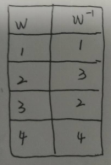 W W⁻¹
1 1
2 3
3 2
4 4